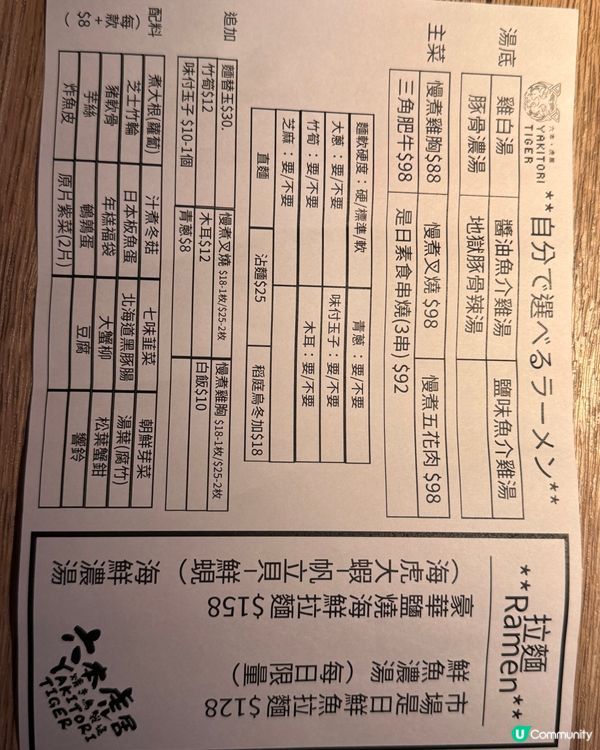 六本・虎居
YAKITORI
TIGER
**自分で選べるラーメン**
湯底
雞白湯 醬油魚介雞湯 鹽味魚介雞湯
豚骨濃湯 地獄豚骨辣湯
主菜
慢煮雞胸$88 慢煮叉燒 $98 慢煮五花肉 $98
三角肥牛$98 是日素食串燒(3串) $92
麵軟硬度：硬/標準/軟 青蔥：要/不要
大蔥：要/不要 味付玉子：要/不要
竹筍：要/不要 木耳：要/不要
芝麻：要/不要
直麵 沾麵$25 稻庭烏冬加$18
追加
麵替玉$30. 慢煮叉燒 $18-1枚/$25-2枚 慢煮雞胸 $18-1枚/$25-2枚
竹筍$12 木耳$12 白飯$10
味付玉子 $10-1個 青蔥$8
配料
(每款+$8)
煮大根(蘿蔔) 汁煮冬菇 七味韮菜 朝鮮芽菜
芝士竹輪 日本板魚蛋 北海道黑豚腸 湯葉(腐竹)
豬軟骨 年糕福袋 大蟹柳 松葉蟹鉗
芋絲 鵪鶉蛋 豆腐 響鈴
炸魚皮 原片紫菜(2片)
拉麵
**Ramen**
市場是日魚鮮拉麵$128
鮮魚濃湯 (每日限量)
豪華鹽燒海鮮拉麵$158
(海虎大蝦-帆立貝-鮮蜆)
海鮮濃湯
六本虎居
YAKITORI
TIGER
U Community